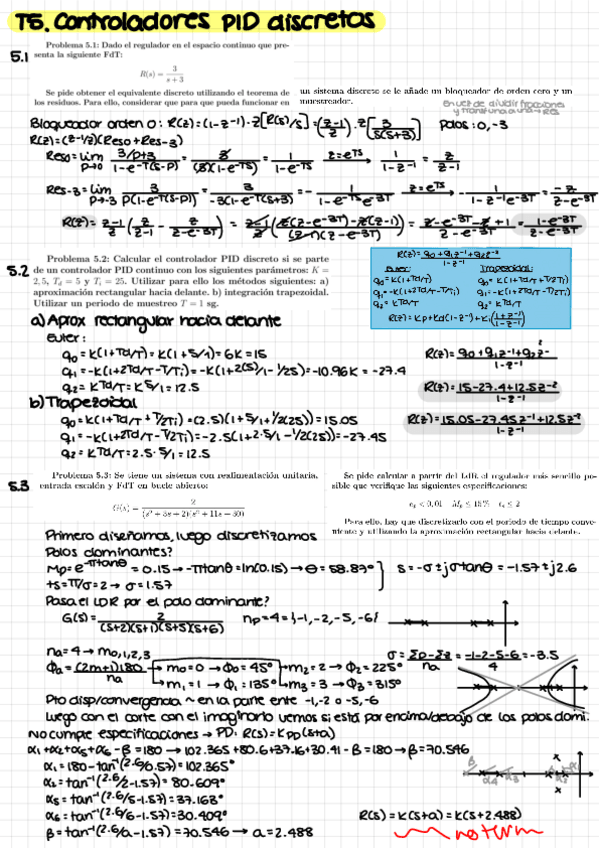 T5. Controladores PID discretos
5.1
Problema 5.1: Dado el regulador en el espacio continuo que presenta la siguiente FdT:
R(s) = 3/(s+3)
Se pide obtener el equivalente discreto utilizando el teorema de
los residuos. Para ello, considerar que para que pueda funcionar en
un sistema discreto se le añade un bloqueador de orden cero y un
muestreador.
Bloqueador orden 0: R(z)=(1-z⁻¹)·Z[R(s)/s]=(z-1/z)·Z[3/s(s+3)] Polos: 0,-3
R(z)=(z-1/z)(Res0+Res-3)
Res0=lim p→0 3/p+3 / 1-e^-T(s-p) = 3/(3)(1-e^-Ts) = 1/1-e^-Ts z=e^Ts → 1/1-z⁻¹ = z/z-1
Res-3=lim p→-3 3/p(1-e^-T(s-p)) = 3/-3(1-e^-T(s+3)) = - 1/1-e^-Ts e^-3T z=e^Ts → - 1/1-z⁻¹e^-3T = -z/z-e^-3T
R(z)= z-1/z (z/z-1 - z/z-e^-3T) = z-1/z (z(z-e^-3T)-z(z-1)/(z-1)(z-e^-3T)) = z-e^-3T-z+1/z-e^-3T = 1-e^-3T/z-e^-3T
5.2
Problema 5.2: Calcular el controlador PID discreto si se parte
de un controlador PID continuo con los siguientes parámetros: K =
2,5, Td = 5 y Ti = 25. Utilizar para ello los métodos siguientes: a)
aproximación rectangular hacia delante. b) integración trapezoidal.
Utilizar un periodo de muestreo T = 1 sg.
R(z)= q0+q1z⁻¹+q2z⁻²/1-z⁻¹
Euler: Trapezoidal:
q0=K(1+Td/T) q0=K(1+Td/T+T/2Ti)
q1=-K(1+2Td/T-T/Ti) q1=-K(1+2Td/T-T/2Ti)
q2=KTd/T q2=KTd/T
R(z)=Kp+Kd(1-z⁻¹)+Ki(1+z⁻¹/1-z⁻¹)
a) Aprox rectangular hacia delante
Euler:
q0=K(1+Td/T)=K(1+5/1)=6K=15
q1=-K(1+2Td/T-T/Ti)=-K(1+2(5)/1-1/25)=-10.96K=-27.4
q2=KTd/T=K5/1=12.5
R(z)= q0+q1z⁻¹+q2z⁻²/1-z⁻¹
R(z)= 15-27.4+12.5z⁻²/1-z⁻¹
b) Trapezoidal
q0=K(1+Td/T+T/2Ti)=(2.5)(1+5/1+1/2(25))=15.05
q1=-K(1+2Td/T-T/2Ti)=-2.5(1+2·5/1-1/2(25))=-27.45
q2=KTd/T=2.5·5/1=12.5
R(z)= 15.05-27.45z⁻¹+12.5z⁻²/1-z⁻¹
5.3
Problema 5.3: Se tiene un sistema con realimentación unitaria,
entrada escalón y FdT en bucle abierto:
G(s) = 2/(s²+3s+2)(s²+11s+30)
Se pide calcular a partir del LdR el regulador más sencillo posible que verifique las siguientes especificaciones:
Para ello, hay que discretizarlo con el periodo de tiempo conveniente y utilizando la aproximación rectangular hacia delante.
Primero diseñamos, luego discretizamos
Polos dominantes?
Mp=e^-π/tanθ = 0.15 → -π/tanθ=ln(0.15) → θ=58.87º
ts=π/σ=2 → σ=1.57
s=-σ±jσtanθ=-1.57±j2.6
Pasa el LDR por el polo dominante?
G(s)= 2/(s+2)(s+1)(s+5)(s+6) np=4={-1,-2,-5,-6}
na=4→m0,1,2,3
Φa=(2m+1)180/na m0=0→Φ0=45º m1=1→Φ1=135º m2=2→Φ2=225º m3=3→Φ3=315º
σ=Σp-Σz/na=-1-2-5-6/4=-3.5
Pto disp/convergencia ~ en la parte ente -1,-2 o -5,-6
Luego con el corte con el imaginario vemos si está por encima/debajo de los polos domi.
No cumple especificaciones → PD: R(s)=Kp(s+a)
α1+α2+α5+α6-β=180→102.365+80.6+37.16+30.41-β=180→β=70.546
α1=180-tan⁻¹(2.6/0.57)=102.365º
α2=tan⁻¹(2.6/2-1.57)=80.609º
α5=tan⁻¹(2.6/5-1.57)=37.163º
α6=tan⁻¹(2.6/6-1.57)=30.409º
β=tan⁻¹(2.6/a-1.57)=70.546→a=2.488
R(s)=K(s+a)=K(s+2.488)